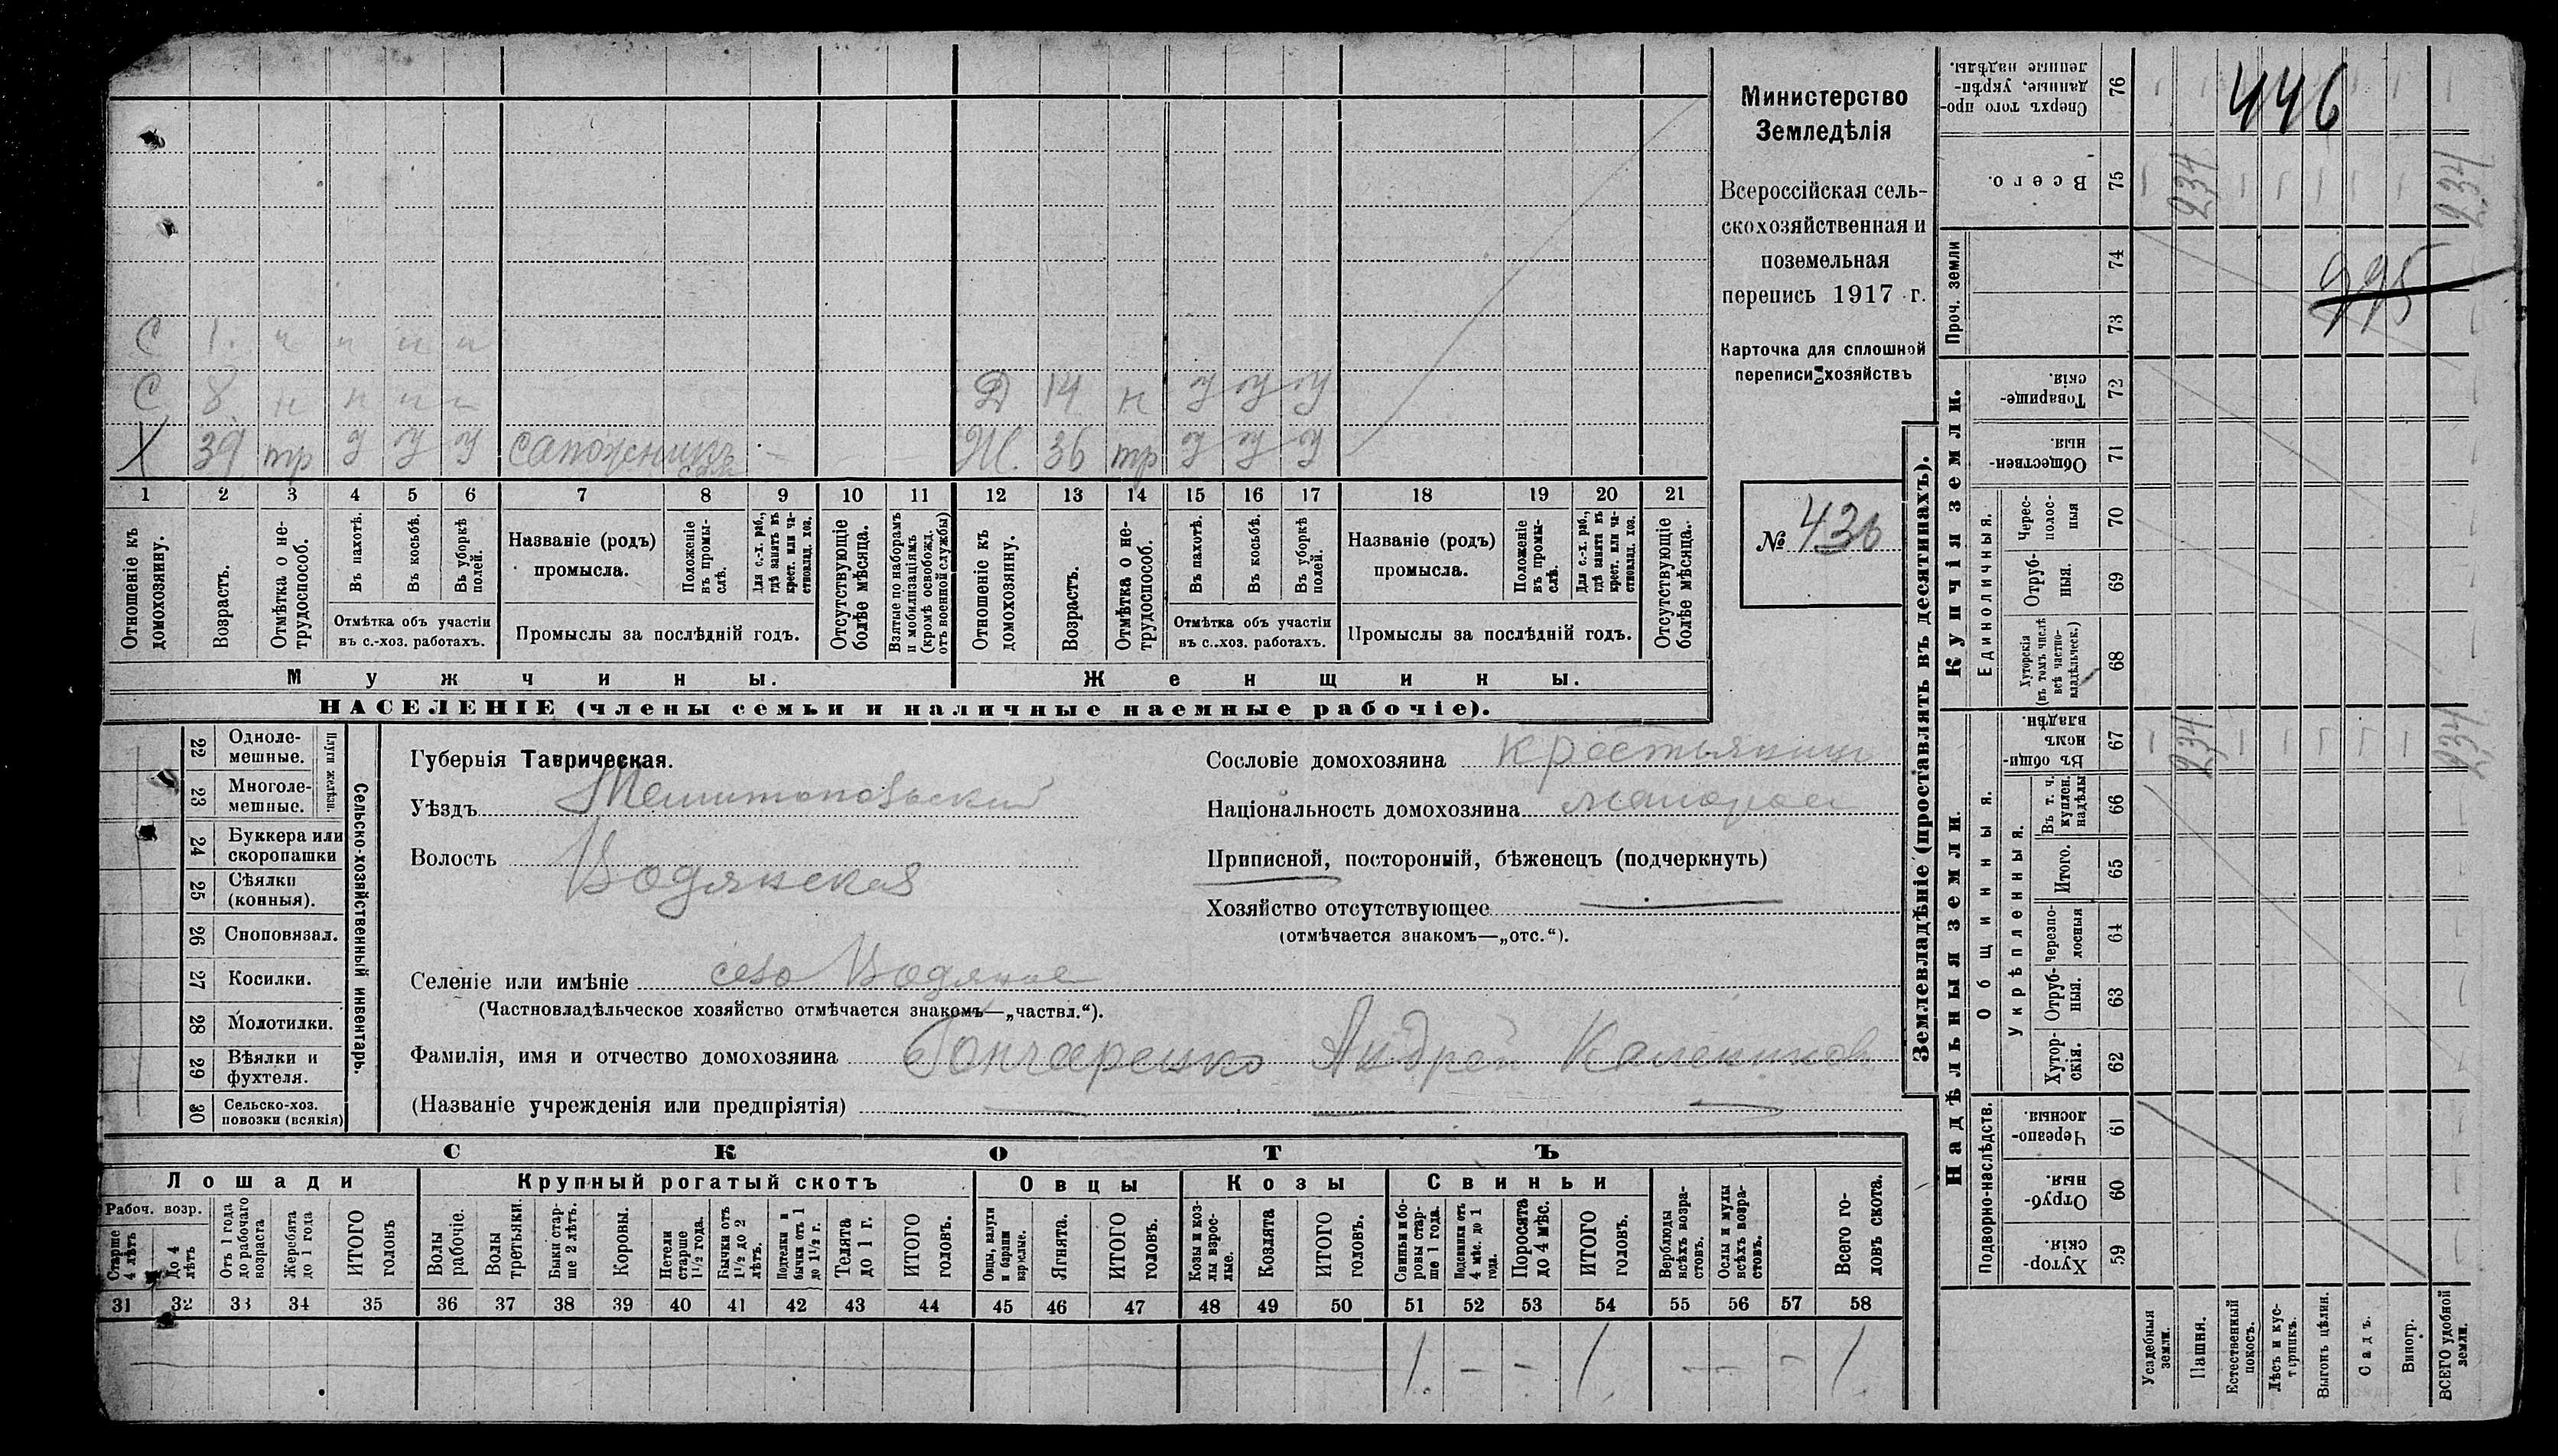 Министерство
Земледѣлія
Всероссійская сель-
скохозяйственная и
поземельная
перепись 1917 г.
Карточка для сплошной
переписи хозяйствъ
№ 436
С 1. н н н н
С 8 н н н н
Д 14 н у у у
Х 39 тр у у у сапожникъ
Ж. 36 тр у у у
1 2 3 4 5 6 7 8 9 10 11 12 13 14 15 16 17 18 19 20 21
Отношеніе къ домохозяину.
Возрастъ.
Отмѣтка о не-
трудоспособ.
Въ пахотѣ.
Въ косьбѣ.
Въ уборкѣ
полей.
Отмѣтка объ участіи
въ с.-хоз. работахъ.
Названіе (родъ)
промысла.
Положеніе
въ промы-
слѣ.
Для с.-х. раб.,
гдѣ занятъ въ
крест. или ча-
стновлад. хоз.
Промыслы за послѣдній годъ.
Отсутствующіе
болѣе мѣсяца.
Взятые по наборамъ
и мобилизаціямъ
(кромѣ освобожд.
отъ военной службы)
Отношеніе къ
домохозяину.
Возрастъ.
Отмѣтка о не-
трудоспособ.
Въ пахотѣ.
Въ косьбѣ.
Въ уборкѣ
полей.
Отмѣтка объ участіи
въ с.-хоз. работахъ.
Названіе (родъ)
промысла.
Положеніе
въ промы-
слѣ.
Для с.-х. раб.,
гдѣ занята въ
крест. или ча-
стновлад. хоз.
Промыслы за послѣдній годъ.
Отсутствующіе
болѣе мѣсяца.
Мужчины.
Женщины.
НАСЕЛЕНІЕ (члены семьи и наличные наемные рабочіе).
Сельско-хозяйственный инвентарь.
Плуги желѣзн.
22 Одноле-
мешные.
23 Многоле-
мешные.
24 Буккера или
скоропашки
25 Сѣялки
(конныя).
26 Сноповязал.
27 Косилки.
28 Молотилки.
29 Вѣялки и
фухтеля.
30 Сельско-хоз.
повозки (всякія)
Губернія Таврическая.
Уѣздъ Мелитопольскій
Волость Водянская
Селеніе или имѣніе село Водяное
(Частновладѣльческое хозяйство отмѣчается знакомъ—„частвл.“).
Фамилія, имя и отчество домохозяина Гончаренко Андрей Калениковъ
(Названіе учрежденія или предпріятія)
Сословіе домохозяина крестьянинъ
Національность домохозяина малоросъ
Приписной, посторонній, бѣженецъ (подчеркнуть)
Хозяйство отсутствующее
(отмѣчается знакомъ—„отс.“).
СКОТЪ
Лошади
Крупный рогатый скотъ
Овцы
Козы
Свиньи
Рабоч. возр.
Старше
4 лѣтъ
До 4
лѣтъ
Отъ 1 года
до рабочаго
возраста
Жеребята
до 1 года
ИТОГО
головъ
Волы
рабочіе.
Волы
третьяки.
Быки стар-
ше 2 лѣтъ.
Коровы.
Нетели
старше
1½ года.
Бычки отъ
1½ до 2
лѣтъ.
Подтелки и
бычки отъ 1
до 1½ г.
Телята
до 1 г.
ИТОГО
головъ.
Овцы, валухи
и бараны
взрослые.
Ягнята.
ИТОГО
головъ.
Козы и коз-
лы взрос-
лые.
Козлята
ИТОГО
головъ.
Свиньи и бо-
ровы стар-
ше 1 года.
Подсвинки отъ
4 мѣс. до 1
года.
Поросята
до 4 мѣс.
ИТОГО
головъ.
Верблюды
всѣхъ возра-
стовъ.
Ослы и мулы
всѣхъ возра-
стовъ.
Всего го-
ловъ скота.
31 32 33 34 35 36 37 38 39 40 41 42 43 44 45 46 47 48 49 50 51 52 53 54 55 56 57 58
1. - - 1. - - - 1.
Землевладѣніе (проставлять въ десятинахъ).
Надѣльныя земли.
Купчія земли.
Проч. земли
Подворно-наслѣдств.
Общинныя.
Укрѣпленныя.
Единоличныя.
Сверхъ того про-
данные, укрѣп-
ленные надѣлы.
76
Всего.
75
74
73
Товарище-
скія.
72
Обществен-
ныя
71
Черес-
полос-
ныя
70
Отруб-
ныя.
69
Хуторскія
(въ томъ числѣ
всѣ частно-
владѣльческ.)
68
Въ общи-
номъ
владѣн.
67
Въ т. ч.
куплен.
надѣлы
66
Итого.
65
Черезпо-
лосныя
64
Отруб-
ныя.
63
Хутор-
скія.
62
Черезпо-
лосныя.
61
Отруб-
ныя.
60
Хутор-
скія.
59
Усадебныя
земли.
Пашня.
Естественный
покосъ.
Лѣсъ и кус-
тарникъ.
Выгонъ цѣлин.
Садъ.
Виногр.
ВСЕГО удобной
земли.
446
995
234
234
234
234